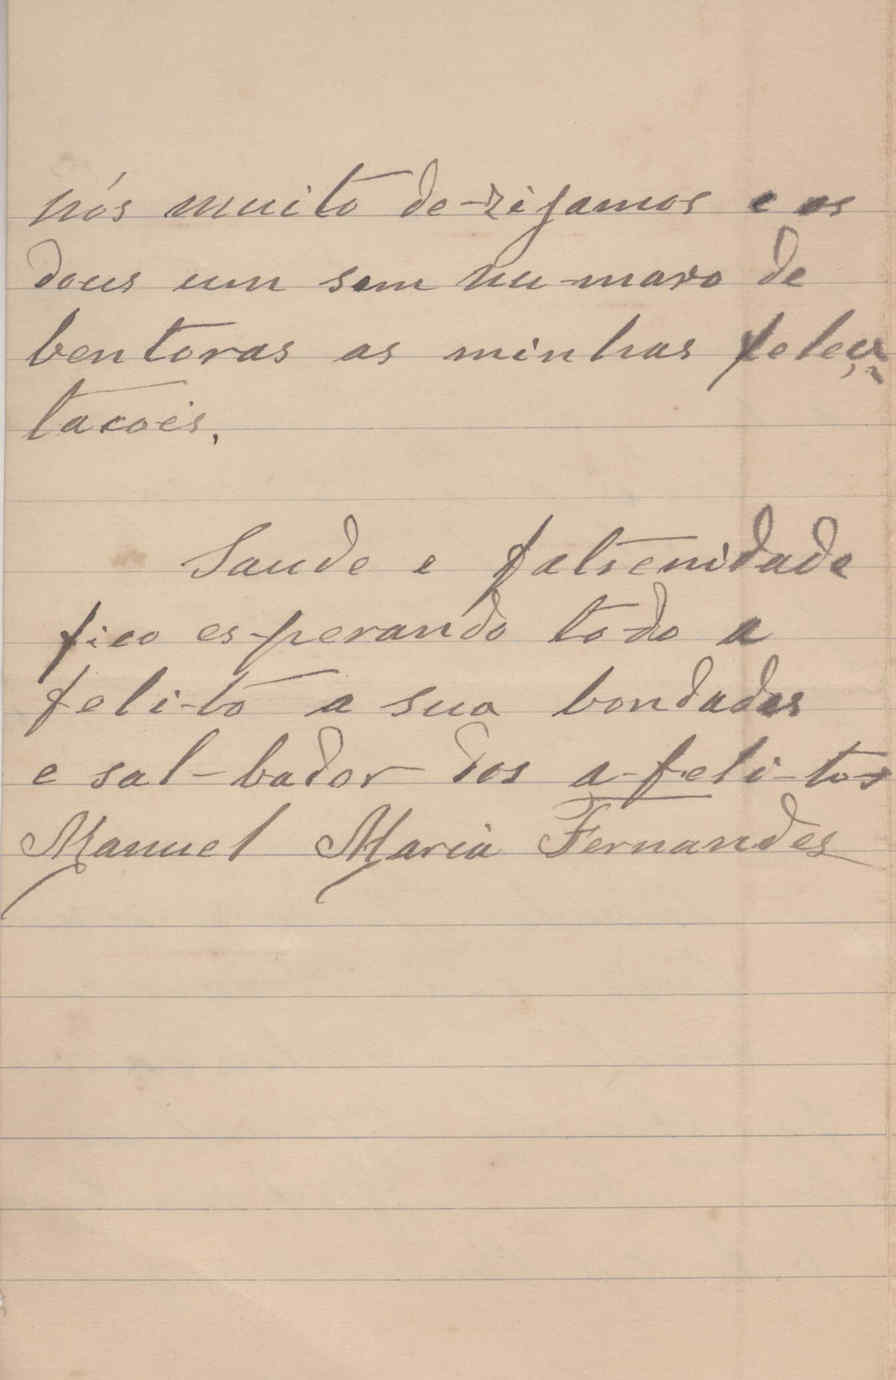 nós muito de-zijamos e os
dous um sem nu-maro de
bentoras as minhas feleci
tacois.
Saude e fatrenidade
fico es-perando to-do a
feli-to a sua bondades
e sal-bador dos a-feli-tos
Manuel Maria Fernandes